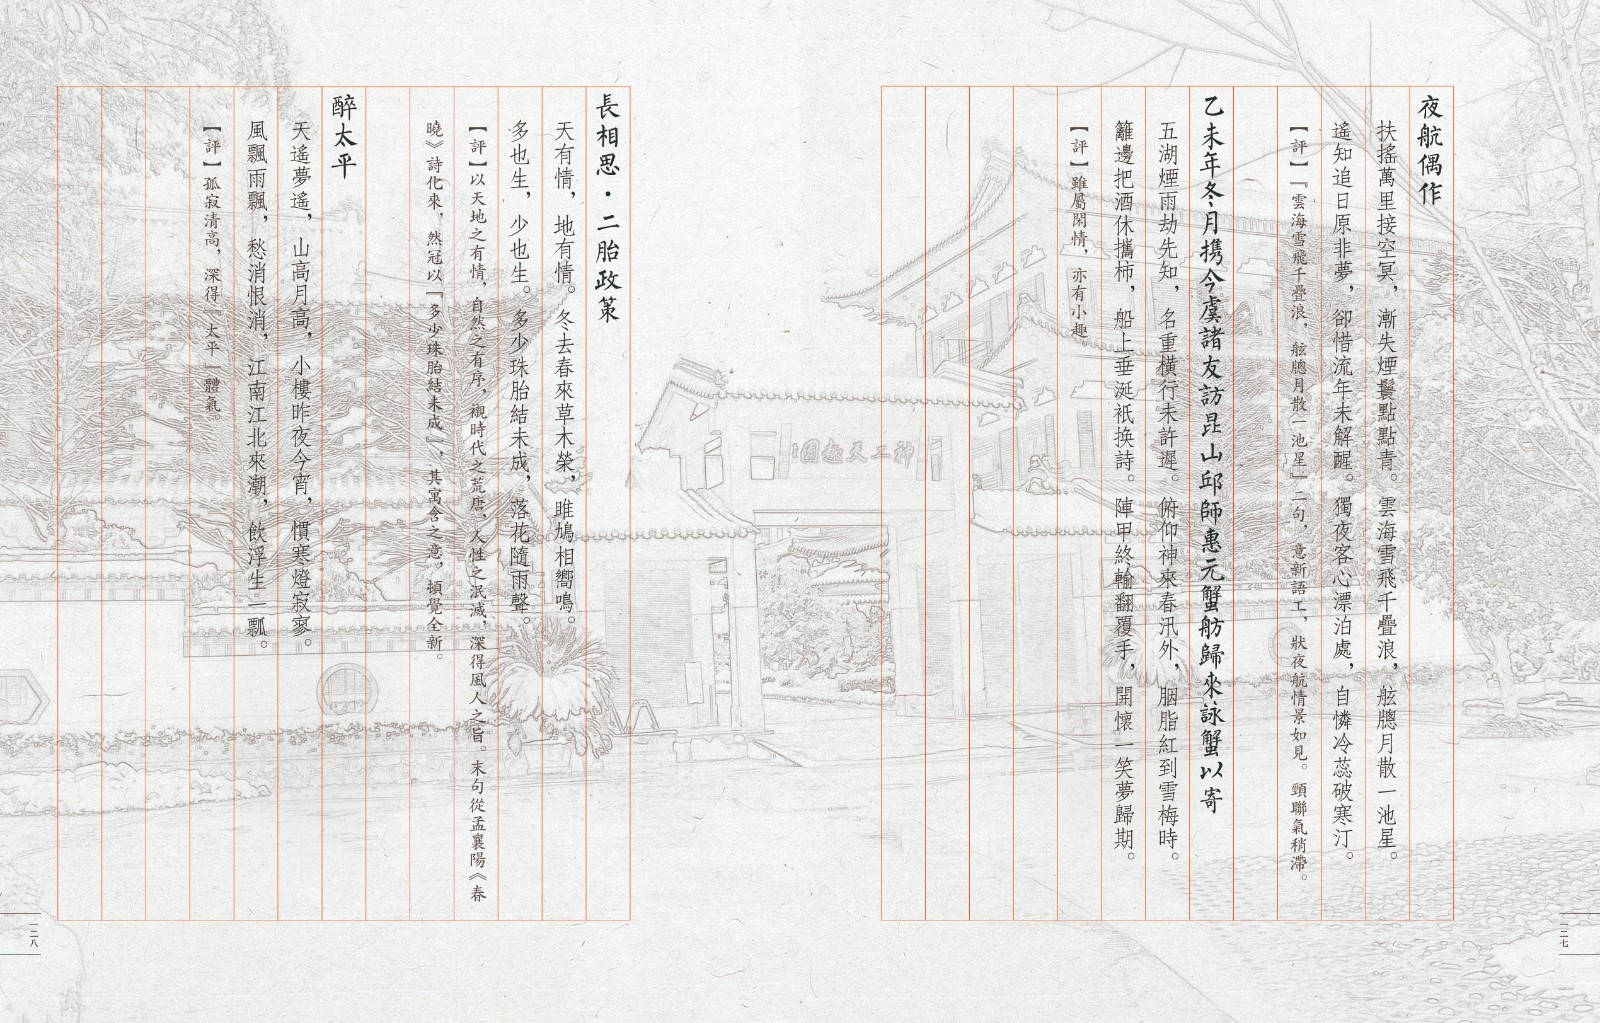 夜航偶作
扶搖萬里接空冥，漸失煙鬟點點青。雲海雪飛千疊浪，舷牕月散一池星。
遙知追日原非夢，卻惜流年未解醒。獨夜客心漂泊處，自憐冷蕊破寒汀。
【評】『雲海雪飛千疊浪，舷牕月散一池星』二句，意新語工，狀夜航情景如見。頸聯氣稍滯。
乙未年冬月携今虞諸友訪昆山邱師惠元蟹舫歸來詠蟹以寄
五湖煙雨劫先知，名重橫行未許遲。俯仰神來春汛外，胭脂紅到雪梅時。
籬邊把酒休攜柿，船上垂涎衹换詩。陣甲終輸翻覆手，開懷一笑夢歸期。
【評】雖屬閑情，亦有小趣。
神工天趣園
一二七
長相思·二胎政策
天有情，地有情。冬去春來草木榮，雎鳩相嚮鳴。
多也生，少也生。多少珠胎結未成，落花隨雨聲。
【評】以天地之有情，自然之有序，襯時代之荒唐，人性之泯滅，深得風人之旨。末句從孟襄陽《春
曉》詩化來，然冠以『多少珠胎結未成』，其寓含之意，頓覺全新。
醉太平
天遙夢遙，山高月高，小樓昨夜今宵，慣寒燈寂寥。
風飄雨飄，愁消恨消，江南江北來潮，飲浮生一瓢。
【評】孤寂清高，深得『太平』體氣。
一二八